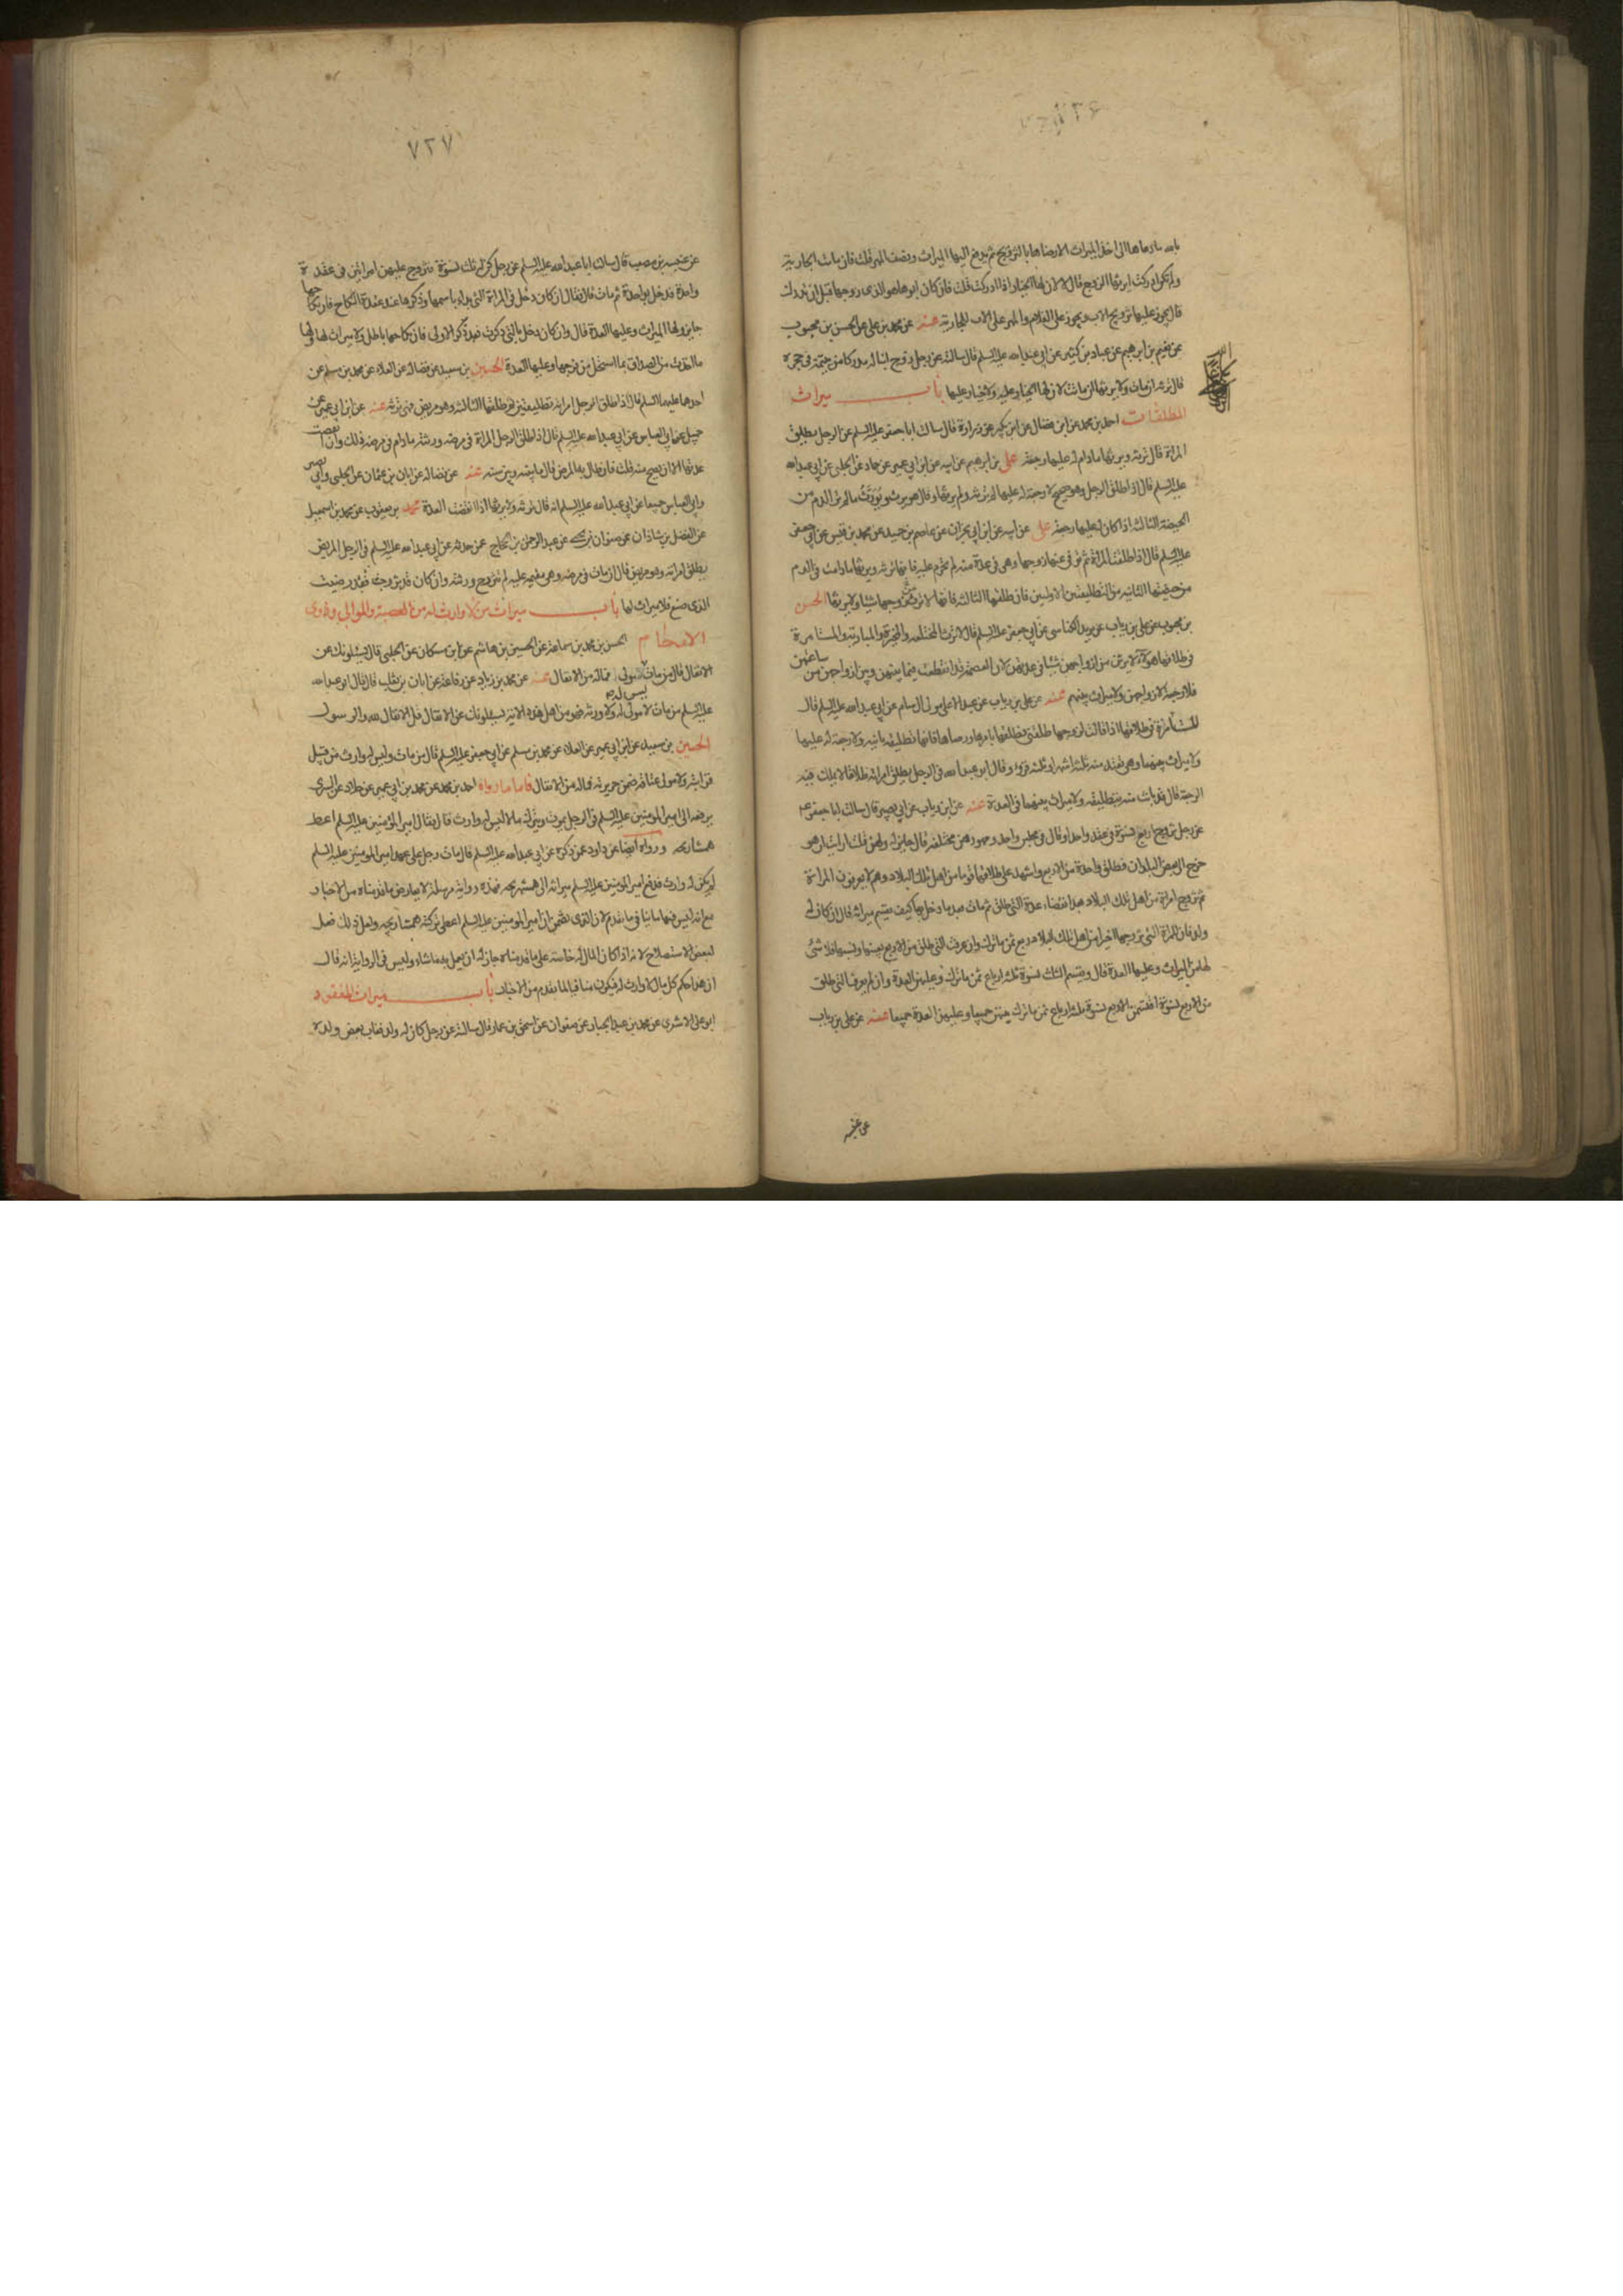 بالله ما دعاها الى اخذ الميراث الا رضاها بالتزويج ثم يدفع اليها الميراث ونصف المهر قلت فان ماتت الجارية
ولم تكن ادركت ايرثها الزوج قال لا لان لها الخيار اذا ادركت قلت فان كان ابوها هو الذى زوجها قبل ان تدرك
قال يجوز عليها تزويج الاب ويجوز على الغلام والمهر على الاب للجارية عنه عن محمد بن على عن الحسن بن محبوب
عن نعيم بن ابرهيم عن عباد بن كثير عن ابى عبد الله عليه السلم قال سالته عن رجل زوج ابنا له مدركا من يتيمة فى حجره
قال ترثه ان مات ولا يرثها ان ماتت لان لها الخيار عليه ولا خيار عليها باب ميراث
المطلقات احمد بن محمد عن ابن فضال عن ابن بكير عن زرارة قال سالت ابا جعفر عليه السلم عن الرجل يطلق
المراة قال ترثه ويرثها مادام له عليها رجعة على بن ابرهيم عن ابيه عن ابن ابى عمير عن حماد عن الحلبى عن ابى عبد الله
عليه السلم قال اذا طلق الرجل وهو صحيح لا رجعة له عليها لم ترثه ولم يرثها وقال هو يرث ويورث ما لم تر الدم من
الحيضة الثالثة اذا كان له عليها رجعة على عن ابيه عن ابن ابى نجران عن عاصم بن حميد عن محمد بن قيس عن ابى جعفر
عليه السلم قال اذا طلقت المراة ثم توفى عنها زوجها وهى فى عدة منه لم تحرم عليه فانها ترثه ويرثها ما دامت فى الدم
من حيضتها الثانية من التطليقتين الاولتين فان طلقها الثالثة فانها لا ترث من زوجها شيئا ولا يرثها الحسن
بن محبوب عن على بن رياب عن يزيد الكناسى عن ابى جعفر عليه السلم قال لا ترث المختلعة والمخيرة والمبارئة والمستامرة
فى طلاقها هؤلاء لا يرثن من ازواجهن شيئا فى عدتهن لان العصمة قد انقطعت فيما بينهن وبين ازواجهن من ساعتهن
فلا رجعة لازواجهن ولا ميراث بينهم عنه عن على بن رياب عن عبد الاعلى مولى ال سام عن ابى عبد الله عليه السلم قال
المستامرة فى طلاقها اذا قالت لزوجها طلقنى فطلقها بامرها ورضاها فانها تطليقة باينة ولا رجعة له عليها
ولا ميراث بينهما وهى تعتد منه ثلثة اشهر او ثلثة قروء وقال ابو عبد الله فى الرجل يطلق امراته طلاقا لا يملك فيه
الرجعة قال قد بانت منه بتطليقة ولا ميراث بينهما فى العدة عنه عن ابن رياب عن ابى بصير قال سالت ابا جعفر ع
عن رجل تزوج اربع نسوة فى عقد واحد او قال فى مجلس واحد ومهورهن مختلفة قال جايز له ولهن قلت ارايت ان هو
خرج الى بعض البلدان فطلق واحدة من الاربع واشهد على طلاقها قوما من اهل تلك البلاد وهم لا يعرفون المراة
ثم تزوج امراة من اهل تلك البلاد بعد انقضاء عدة التى طلق ثم مات بعد ما دخل بها كيف يقسم ميراثه قال ان كان له
ولد فان للمراة التى تزوجها اخيرا من اهل تلك البلاد ربع ثمن ما ترك وان عرفت التى طلق من الاربع بعينها ونسبها فلا شئ
لها من الميراث وعليها العدة قال ويقسم الثلث نسوة ثلثة ارباع ثمن ما ترك وعليهن العدة وان لم يعرف التى طلق
من الاربع نسوة اقتسمن الاربع نسوة ثلثة ارباع ثمن ما ترك بينهن جميعا وعليهن العدة جميعا عنه عن على بن رياب
عن عنبسه
٧٢٧
عن عنبسه بن مصعب قال سالت ابا عبد الله عليه السلم عن رجل كن له ثلث نسوة فتزوج عليهن امراتين فى عقدة
واحدة فدخل بواحدة ثم مات قال فقال ان كان دخل فى المراة التى بدا باسمها وذكرها عند عقدة النكاح فان نكاحها
جايز ولها الميراث وعليها العدة قال وان كان دخل بالتى ذكرت بعد ذكر الاولى فان نكاحها باطل ولا ميراث لها ولها
ما اخذت من الصداق بما استحل من فرجها وعليها العدة الحسين بن سعيد عن فضاله عن العلاء عن محمد بن مسلم عن
احدهما عليهما السلم قال اذا طلق الرجل امراته تطليقتين ثم طلقها الثالثة وهو مريض فهى ترثه عنه عن ابن ابى عمير عن
جميل عن ابى العباس عن ابى عبد الله عليه السلم قال اذا طلق الرجل المراة فى مرضه ورثته مادام فى مرضه ذلك وان انقضت
عدتها الا ان يصح منه قلت فان طال به المرض قال ما بينه وبين سنه عنه عن فضاله عن ابان بن عثمان عن الحلبى وابى بصير
وابى العباس جميعا عن ابى عبد الله عليه السلم انه قال ترثه ولا يرثها اذا انقضت العدة محمد بن يعقوب عن محمد بن اسمعيل
عن الفضل بن شاذان عن صفوان بن يحيى عن عبد الرحمن بن الحجاج عن من حدثه عن ابى عبد الله عليه السلم فى الرجل المريض
يطلق امراته وهو مريض قال ان مات فى مرضه وهى مقيمه عليه لم تتزوج ورثته وان كان قد تزوجت فقد رضيت
الذى صنع فلا ميراث لها باب ميراث من لا وارث له من العصبة والموالى وذوى
الارحام الحسن بن محمد بن سماعة عن الحسين بن هاشم عن ابن مسكان عن الحلبى قال يسئلونك عن
الانفال قال من مات وليس له مولى فماله من الانفال عنه عن محمد بن زياد عن رفاعة عن ابان بن تغلب قال قال ابو عبد الله
عليه السلم من مات لا مولى له ولا ورثه فهو من اهل هذه الاية يسئلونك عن الانفال قل الانفال لله والرسول
الحسين بن سعيد عن ابن ابى عمير عن العلاء عن محمد بن مسلم عن ابى جعفر عليه السلم قال من مات وليس له وارث من قبل
قرابته ولا مولى عتاقه ضمن جريرته فماله من الانفال فاما ما رواه احمد بن محمد عن محمد بن ابى عمير عن خلاد عن السرى
يرفعه الى امير المؤمنين عليه السلم فى الرجل يموت ويترك مالا ليس له وارث قال فقال امير المؤمنين عليه السلم اعط
همشاريجه ورواه ايضا عن داود عمن ذكره عن ابى عبد الله عليه السلم قال مات رجل على عهد امير المؤمنين عليه السلم
لم يكن له وارث فدفع امير المؤمنين عليه السلم ميراثه الى همشهريجه فهذه رواية مرسلة لا يعارض ما قدمناه من الاخبار
مع انه ليس فيها ما ينافى ما تقدم لان الذى تضمن ان امير المؤمنين عليه السلم اعطى تركته همشاريجه ولعل ذلك فعل
لبعض الاستصلاح لانه اذا كان المال له خاصة على ما قدمناه جاز له ان يعمل به ما شاء وليس فى الرواية انه قال
ان هذا حكم كل مال لا وارث له فيكون منافيا لما تقدم من الاخبار باب ميراث المفقود
ابو على الاشعرى عن محمد بن عبد الجبار عن صفوان عن اسحق بن عمار قال سالته عن رجل كان له ولد فغاب بعض ولده